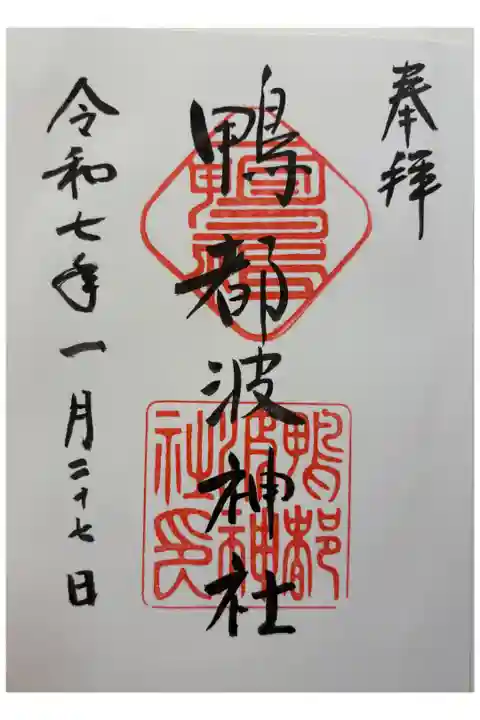 奉拝
鴨都波神社
鴨都
波神
社印
令和七年一月二十七日